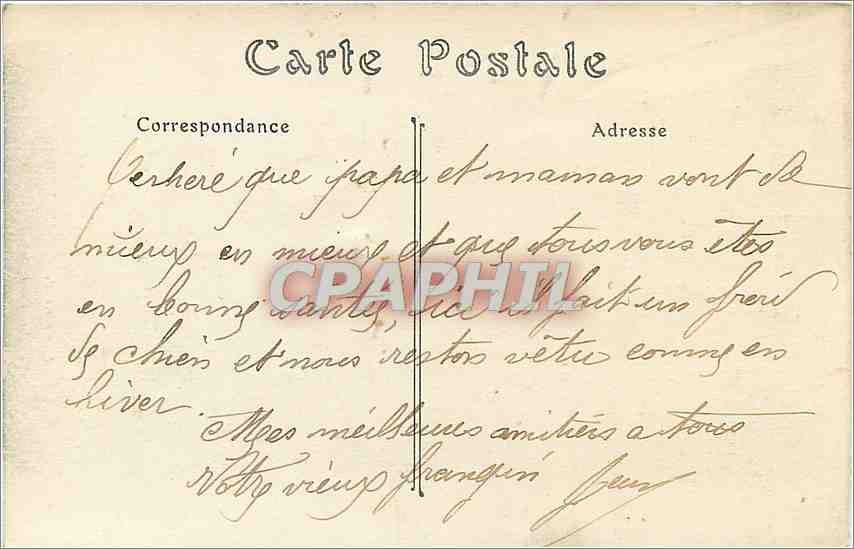 Carte Postale
Correspondance
Adresse
J'esheré que papa et maman vont de
mieux en mieux et que tous vous êtes
en bonne santé, ici il fait un froid
de chien et nous restons vêtu comme en
hiver.
Mes meilleures amitiés a tous
Votre vieux frangin
CPAPHIL